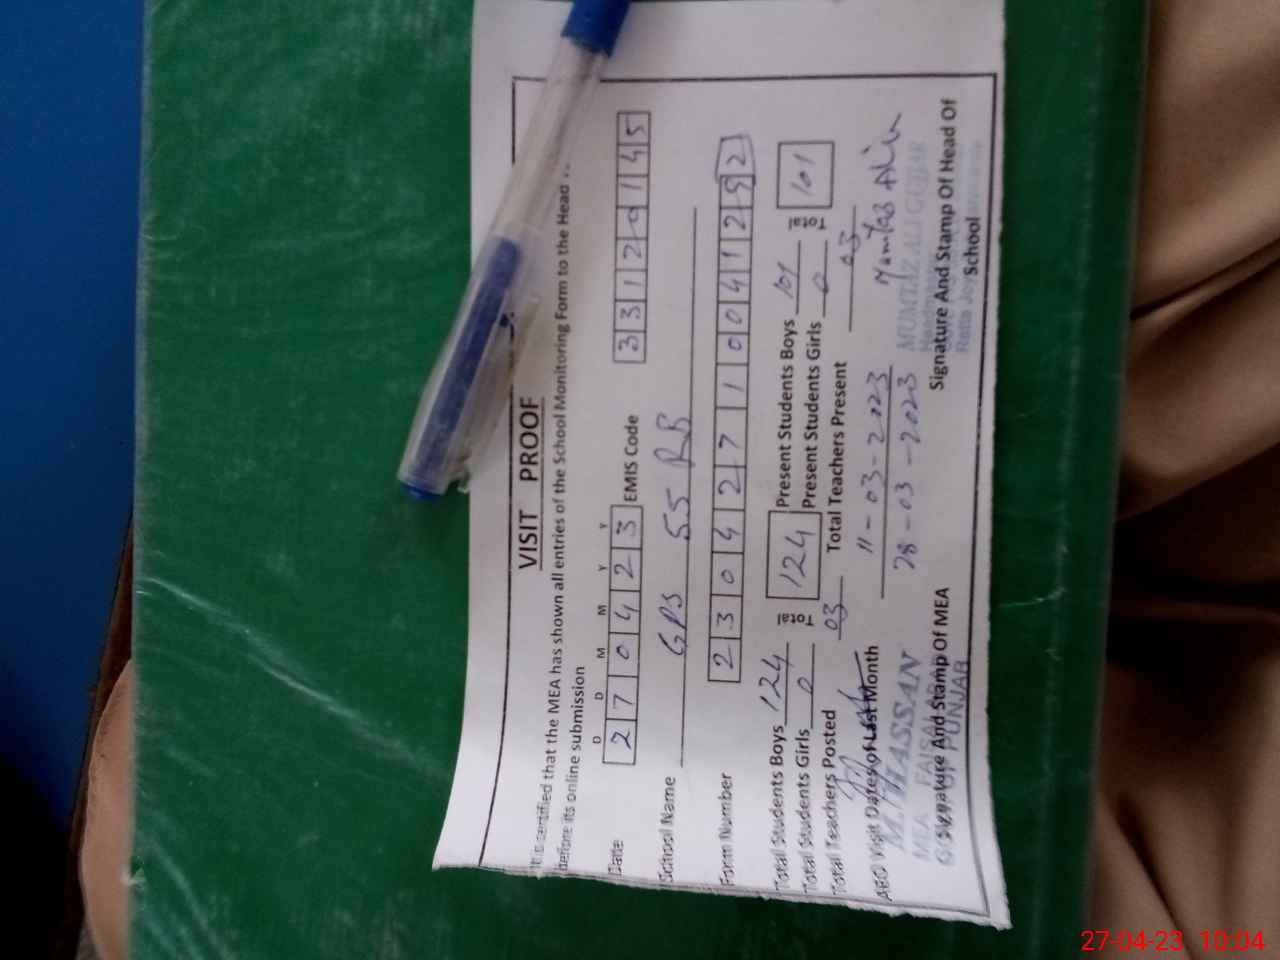 VISIT PROOF
It is certified that the MEA has shown all entries of the School Monitoring Form to the Head
before its online submission
D D M M Y Y
Date 2 7 0 4 2 3 EMIS Code 3 3 1 2 0 1 4 5
School Name GPS 55 RB
Form Number 2 3 0 4 2 7 1 0 0 4 1 2 9 2
Total Students Boys 124 Total 124 Present Students Boys 101 Total 101
Total Students Girls 0 Present Students Girls 0
Total Teachers Posted 03 Total Teachers Present 03
AEO Visit Dates of Last Month 11-03-2023
28-03-2023
Mumtaz Ali
M. HASSAN
MUMTAZ ALI GUJJAR
MEA
PUNJAB
Signature And Stamp Of MEA
Signature And Stamp Of Head Of
School
27-04-23 10:04